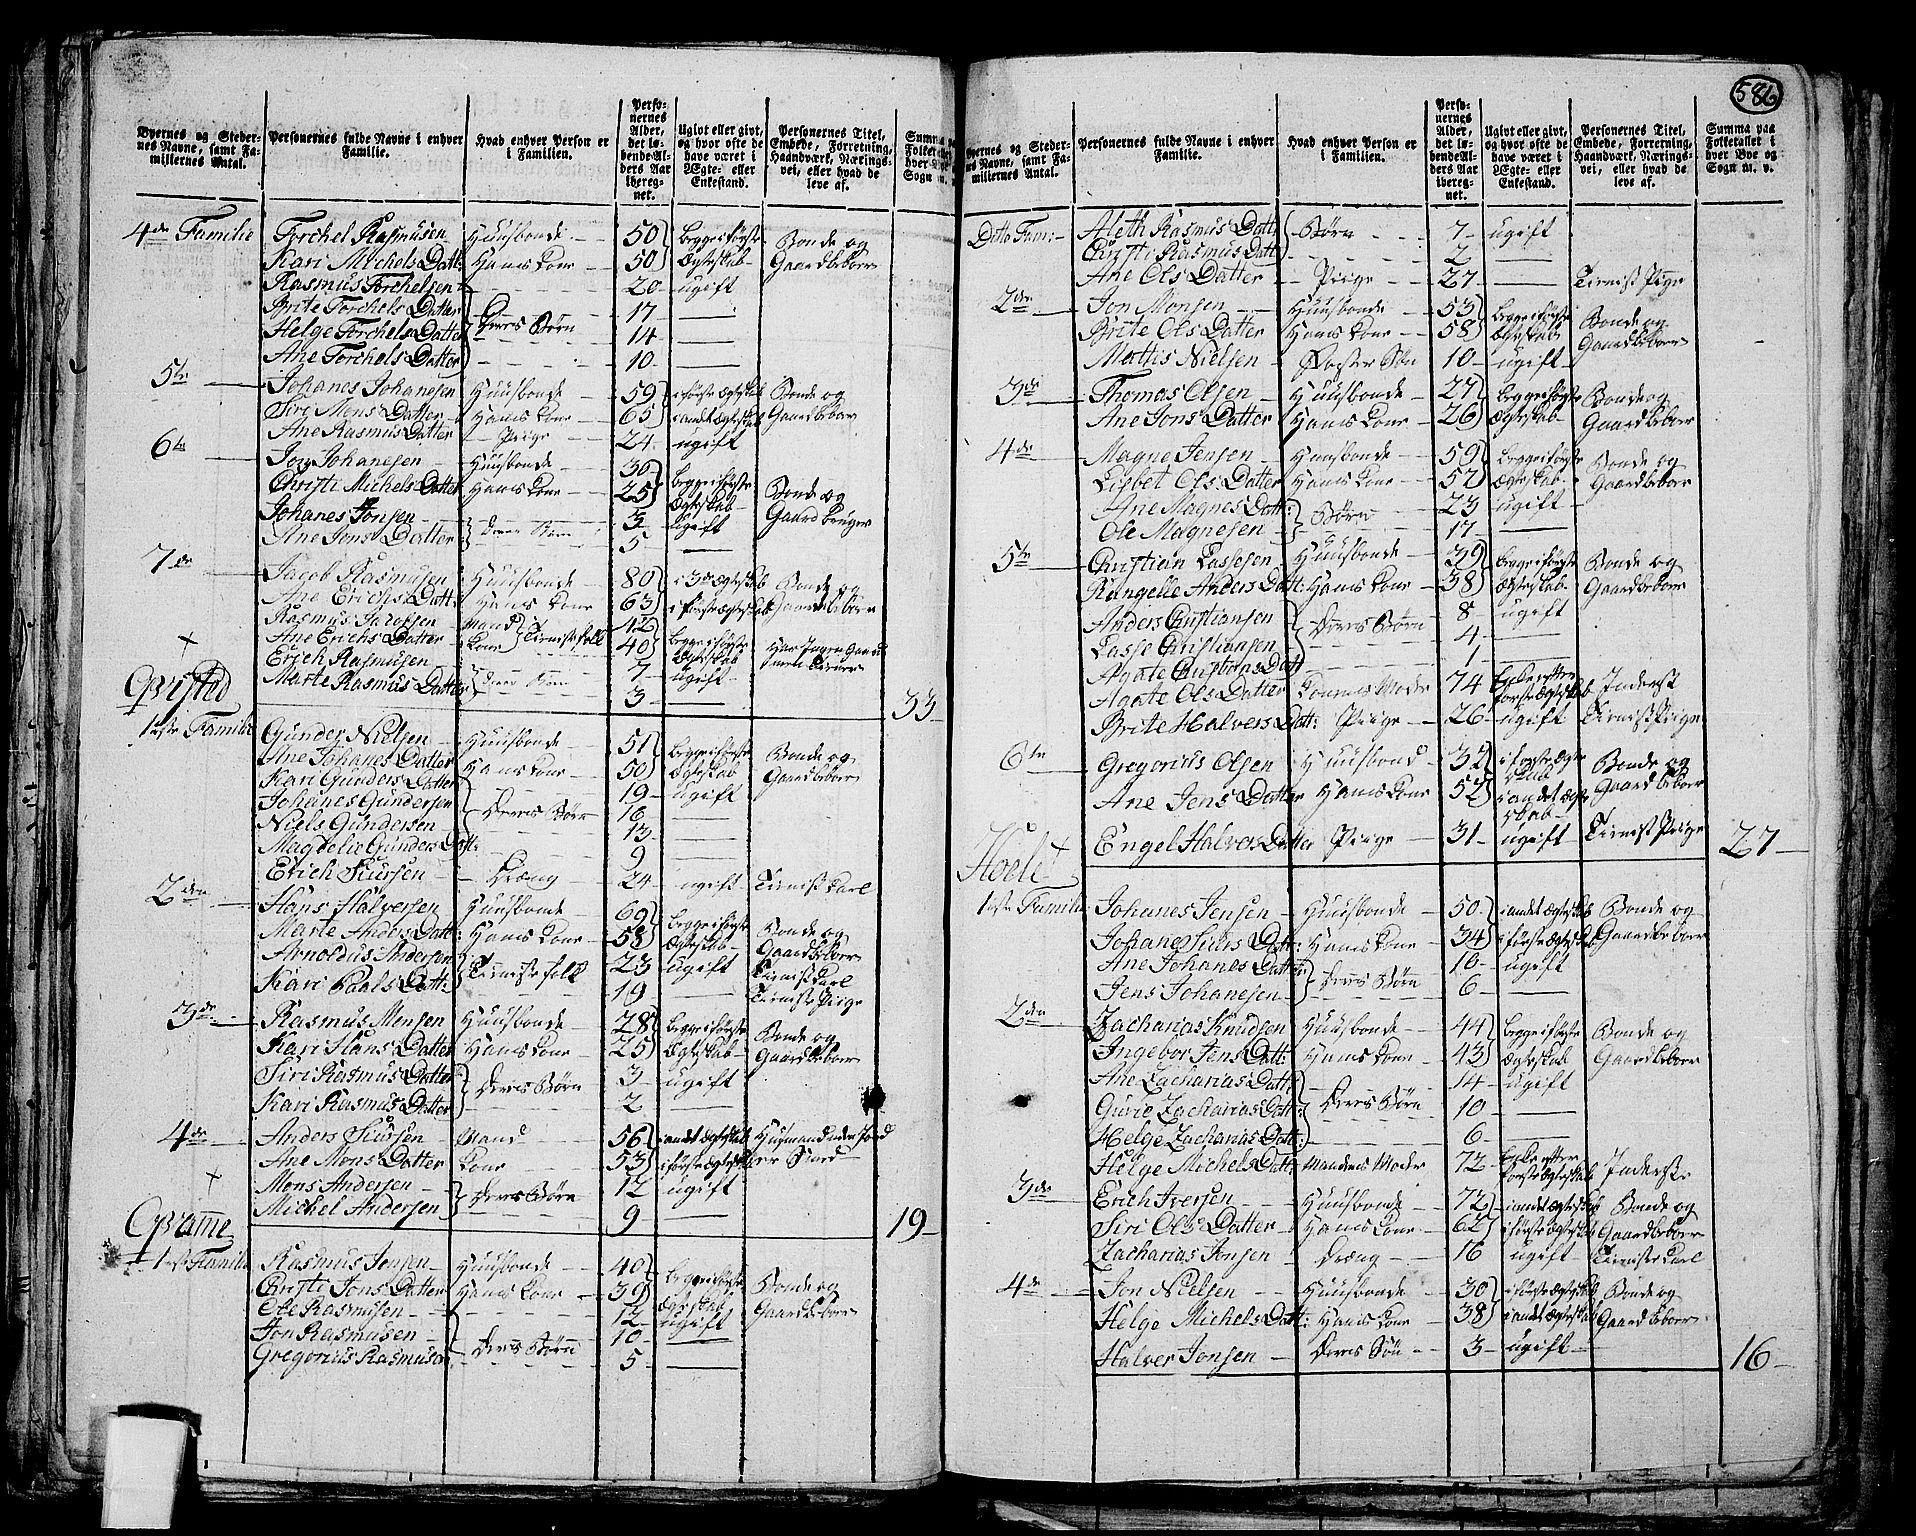 586
Byernes og Steder-nes Navne, samt Fa-millernes Antal.
Personernes fulde Navne i enhver Familie.
Hvad enhver Person er i Familien.
Perso-nernes Alder, det lø-bende Al-ders Aar iberegnet.
Ugivt eller givt, og hvor ofte de have været i Ægte- eller Enkestand.
Personernes Titel, Embede, Forretning, Haandværk, Nærings-vei, eller hvad de leve af.
4de Familie Torchel Rasmusen Huusbonde 50 begge i første Bonde og
Kari Michels Datt: Hans Kone 50 Ægteskab Gaardbeboer
Rasmus Torchelsen 20 ugift
Brite Torchels Datter 17
Helge Torchels Datter Deres Børn 14
Ane Torchels Datter 10
5te Johanes Johanesen Huusbonde 59 i første Ægteskab Bonde og
Siri Mons Datter Hans Kone 65 i andet Ægteskab Gaardbeboer
Ane Rasmus Datter Piige 24 ugift
6te Jon Johanesen Huusbonde 36 begge i første Bonde og
Christi Michels Datter Hans Kone 25 Ægteskab Gaardbruger
Johanes Jonsen 3 ugift
Ane Jons Datter Deres Børn 5
7de Jacob Rasmusen Huusbonde 80 i 3de Ægteskab Bonde og
Ane Erichs Datt: Hans Kone 63 i første Ægteskab Gaardbeboer
Rasmus Jacobsen Mand 42
Ane Erichs Datter Kone Tieniste folk 40 begge i første Ægteskab
Erich Rasmusen 7 ugift
Marte Rasmus Datter Deres Børn 3 33
Qvistad
1ste Familie Gunder Nielsen Huusbonde 51 begge i første Bonde og
Ane Johanes Datter Hans Kone 50 Ægteskab Gaardbeboer
Kari Gunders Datter 19 ugift
Johanes Gundersen Deres Børn 16
Niels Gundersen 13
Magdelie Gunders Datt: 9
Erich Siursen Dræng 24 ugift Tienistkarl
2den Hans Halversen Huusbonde 69 begge i første Bonde og
Marte Anders Datt: Hans Kone 58 Ægteskab Gaardbeboer
Arnoldus Andersen Tieniste folk 23 ugift Tienistkarl
Kari Paals Datt: 19 Tieniste Piige
3de Rasmus Monsen Huusbonde 28 begge i første Bonde og
Kari Hans Datter Hans Kone 25 Ægteskab Gaardbeboer
Siri Rasmus Datter Deres Børn 3 ugift
Kari Rasmus Datter 2
4de Anders Siursen Mand 56 i andet Ægteskab Huusmand uden Jord
Ane Mons Datter Kone 53 i første Ægteskab
Mons Andersen Deres Børn 12 ugift
Michel Andersen 9 19
Qvamme
1ste Familie Rasmus Jonsen Huusbonde 40 begge i første Bonde og
Christi Jons Datter Hans Kone 39 Ægteskab Gaardbeboer
Ole Rasmusen 12 ugift
Jon Rasmusen Deres Børn 10
Gregorius Rasmusen 5
Byernes og Steder-nes Navne, samt Fa-millernes Antal.
Personernes fulde Navne i enhver Familie.
Hvad enhver Person er i Familien.
Perso-nernes Alder, det lø-bende Al-ders Aar iberegnet.
Ugivt eller givt, og hvor ofte de have været i Ægte- eller Enkestand.
Personernes Titel, Embede, Forretning, Haandværk, Nærings-vei, eller hvad de leve af.
Summa paa Folketallet i hver Bye og Sogn m. v.
Dito Fam: Aleth Rasmus Datt: Børn 7 ugift
Christi Rasmus Datt: 2
Ane Ols Datter Piige 27 Tienist Piige
2den Jon Monsen Huusbonde 53 begge i første Bonde og
Brite Ols Datter Hans Kone 58 Ægteskab Gaardbeboer
Mattis Nielsen Foster Søn 10 ugift
3de Thomas Olsen Huusbonde 27 begge i første Bonde og
Ane Jons Datter Hans Kone 26 Ægteskab Gaardbeboer
4de Magne Jensen Huusbonde 59 begge i første Bonde og
Lisbet Ols Datter Hans Kone 57 Ægteskab Gaardbeboer
Ane Magnes Datt: Børn 23 ugift
Ole Magnesen 17
5te Christian Lassesen Huusbonde 39 begge i første Bonde og
Rangelle Anders Datt: Hans Kone 38 Ægteskab Gaardbeboer
Anders Christiansen 8 ugift
Lasse Christiansen Deres Børn 4
Agate Christians Datt 1
Agate Ols Datter Konens Moder 74 Enke efter første Ægteskab Inderst
Brite Halvers Datt: Piige 26 ugift Tienist Piige
6te Gregorius Olsen Huusbond 32 i første Ægteskab Bonde og
Ane Jens Datter Hans Kone 52 i andet Ægteskab Gaardbeboer
Engel Halvors Datter Piige 31 ugift Tienist Piige 27
Hölet
1ste Familie Johanes Jensen Huusbonde 50 i andet Ægteskab Bonde og
Johane Siurs Datt: Hans Kone 34 i første Ægteskab Gaardbeboer
Ane Johanes Datter Deres Børn 16 ugift
Jens Johanesen 6
2den Zacharias Knudsen Huusbonde 44 begge i første Bonde og
Ingebor Jens Datt: Hans Kone 43 Ægteskab Gaardbeboer
Ane Zacharias Datt: 14 ugift
Gurie Zacharias Datt: Deres Børn 10
Helge Zacharias Datt: 6
Helge Michels Datt: Mandens Moder 72 Enke efter første Ægteskab Inderste
3de Erich Iversen Huusbonde 72 i andet Ægteskab Bonde og
Siri Ols Datter Hans Kone 62 i første Ægteskab Gaardbeboer
Zacharias Jonsen Dræng 16 ugift Tieniste Karl
4de Jon Nielsen Huusbonde 30 i første Ægteskab Bonde og
Helge Michels Datt: Hans Kone 38 i andet Ægteskab Gaardbeboer
Halver Jonsen Deres Søn 3 ugift 16